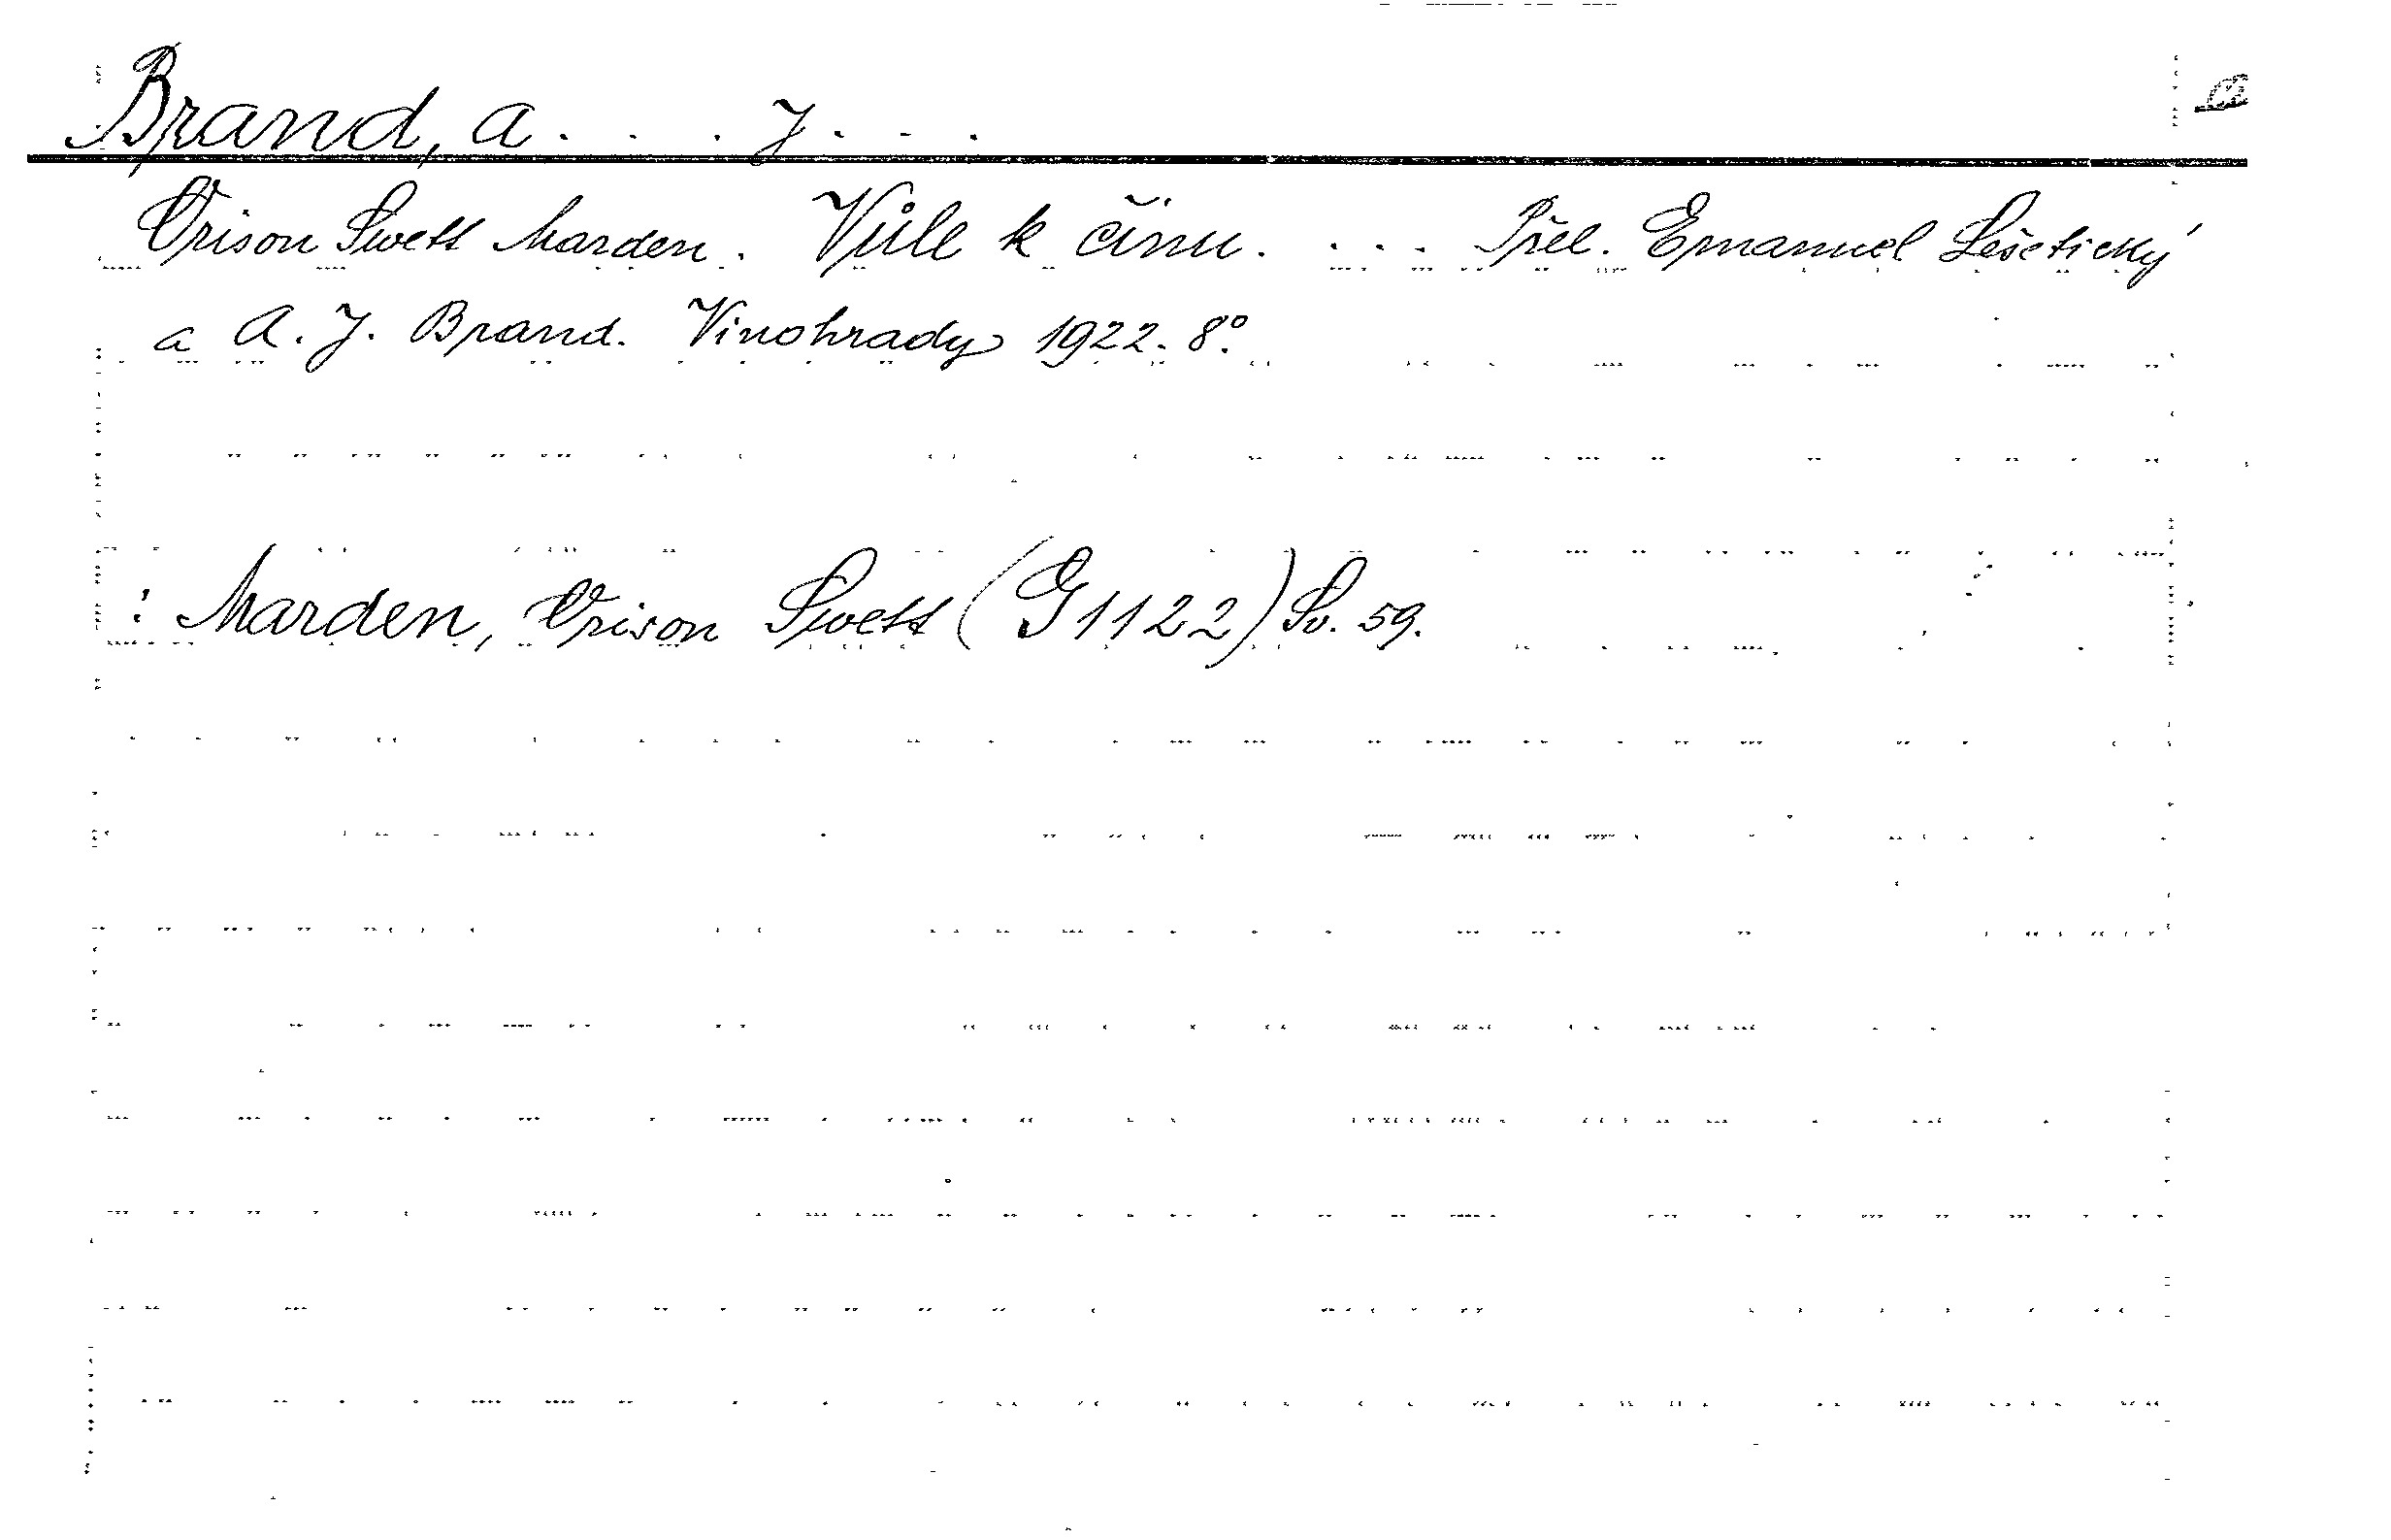 Brand, A. . . . J. . . .
Orison Swett Marden. Vůle k činu. . . . Přel. Emanuel Lešetický
a A. J. Brand. Vinohrady 1922. 8°.
: Marden, Orison Swett (G 1122) Sv. 59.